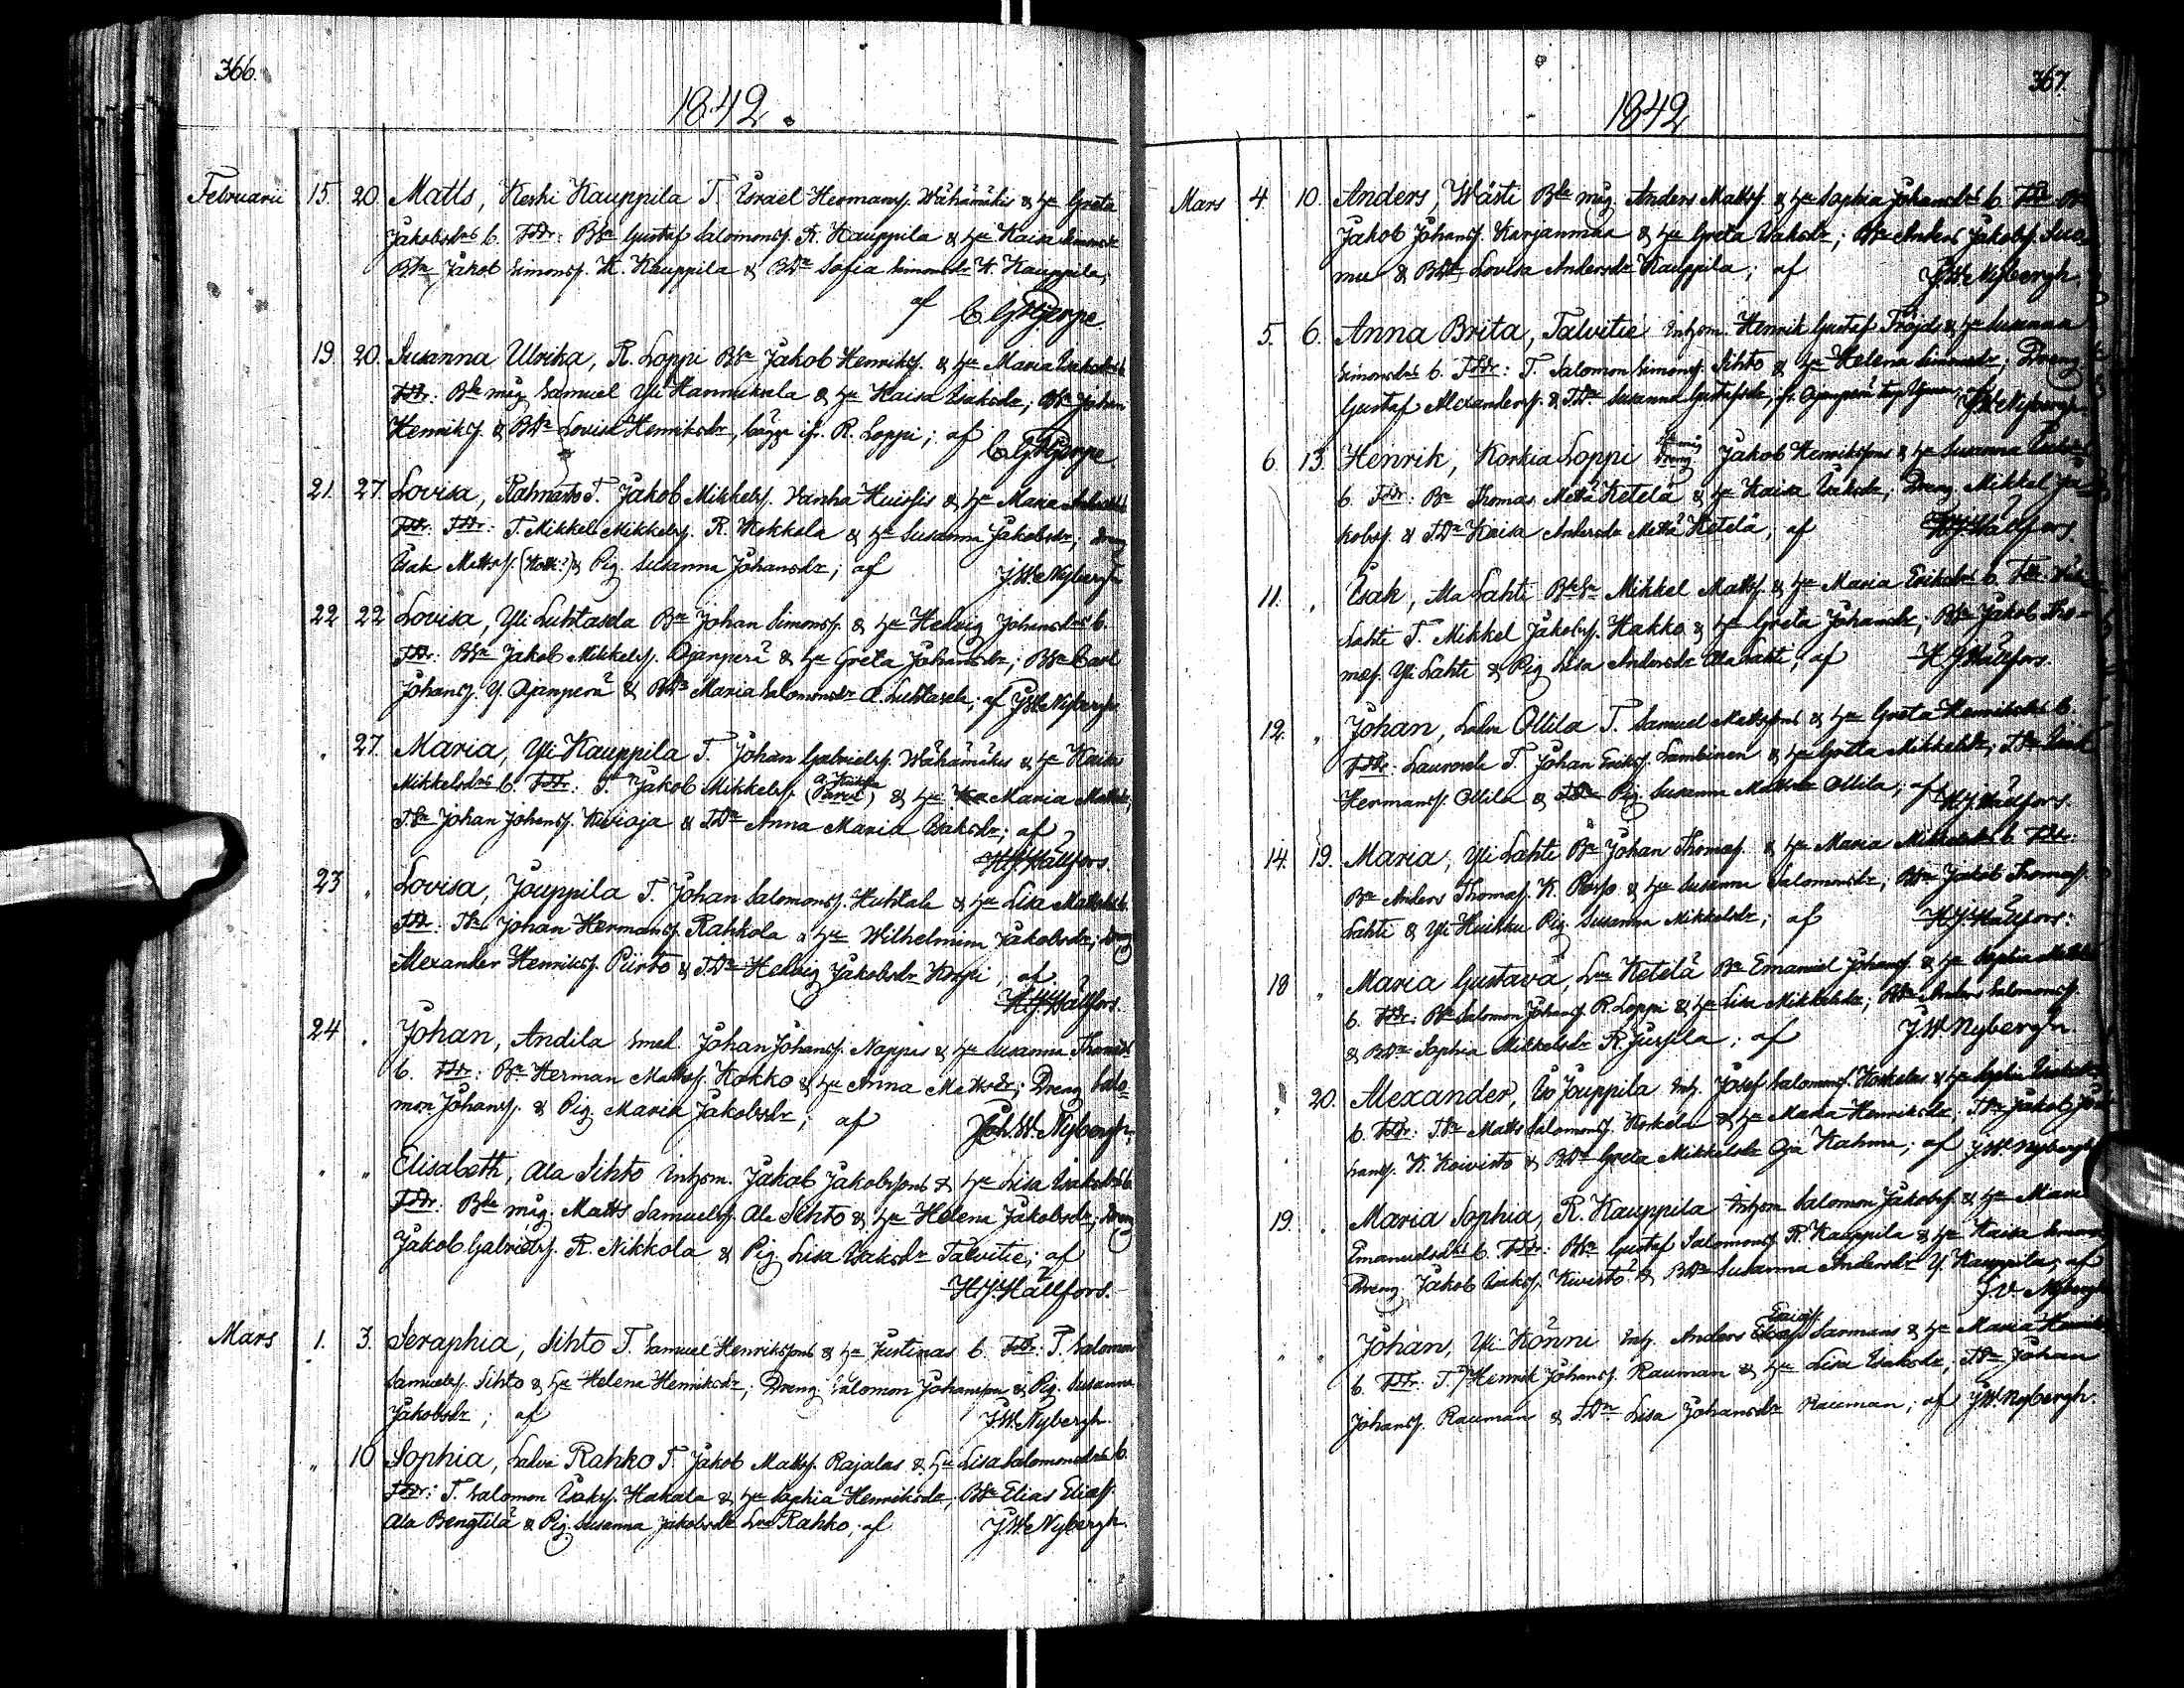 366.
1842.
Februarii 15. 20. Matts, Keski Kauppila T. Israel Hermanss. Wähämäkis & h:u Greta
Jakobsdrs b. Fddr: Bsn Gustaf Salomonss. R. Kauppila & h:u Kaisa Simonsdr
Bsn Jakob Simonss. K. Kauppila & BDr Sofia Simonsdr K. Kauppila,
af
19. 20. Susanna Ulrika, R. Loppi Bsn Jakob Henrikss. & h:u Maria Isaksdrs b.
Fddr: Bde måg Samuel Yli Hannuksela & h:u Kaisa Isaksdr; Bsn Johan
Henrikss. & BDr Lovisa Henriksdr, bägge ifr. R. Loppi; af
21. 27. Lovisa, T. Jakob Mikkelss. Wanha Huissis & h:u Maria
Fddr: T. Mikkel Mikkelss. R. Kokkola & h:u Susanna Jakobsdr; Dreng
Isak Mattss. & Pig. Susanna Johansdr; af J.W. Nybergh
22 22 Lovisa, Yli Luhtasela Bn Johan Simonss. & h:u Hedvig Johansdrs b.
Fddr: Bsn Jakob Mikkelss. Ojanperä & h:u Greta Johansdr; Bsn Carl
Johanss. Y. Ojanperä & BDr Maria Salomonsdr A. Luhtasela; af J.W. Nybergh
" 27. Maria, Yli Kauppila T. Johan Gabrielss. Wähämäkis & h:u Kaisa
Mikkelsdrs b. Fddr: T. Jakob Mikkelss. & h:u Maria Mattsdr,
T.Sn Johan Johanss. Kivioja & T.Dr Anna Maria Isaksdr; af
H.J. Hällfors.
23 " Lovisa, Jouppila T. Johan Salomonss. Huhtala & h:u Lisa Mattsdrs b.
Fddr: T.Sn Johan Hermanss. Rahkola & h:u Wilhelmina Jakobsdr; Dreng
Alexander Henrikss. Piirto & T.Dr Hedvig Jakobsdr Korpi; af
H.J. Hällfors.
24 " Johan, Andila Smed Johan Johanss. Nappis & h:u Susanna Thomasdrs
b. Fddr: Bn Herman Mattss. Kokko & h:u Anna Mattsdr; Dreng Salo-
mon Johanss. & Pig. Maria Jakobsdr; af Joh. W. Nybergh.
" " Elisabeth, Ala Sihto Inhsm. Jakob Jakobssons & h:u Lisa Isaksdrs b.
Fddr: Bde måg. Matts Samuelss. Ala Sihto & h:u Helena Jakobsdr; Dreng
Jakob Gabrielss. R. Nikkola & Pig. Lisa Isaksdr Talvitie; af
H.J. Hällfors.
Mars 1. 3. Seraphia, Sihto T. Samuel Henrikssons & h:u Justinas b. Fddr: T. Salomon
Samuelss. Sihto & h:u Helena Henriksdr; Dreng Salomon Johansson & Pig. Susanna
Jakobsdr; af J.W. Nybergh.
" 10 Sophia, Lalva Rahko T. Jakob Mattss. Rajalas & h:u Lisa Salomonsdrs b.
Fddr: T. Salomon Isakss. Hakala & h:u Sophia Henriksdr; BSn Elias Eliass.
Ala Bengtilä & Pig. Susanna Jakobsdr Lva Rahko; af J.W. Nybergh.
367.
1842
Mars 4. 10. Anders, Wästi Bde måg Anders Mattss. & h:u Sophia Johansdrs b. Fddr: Bn
Jakob Johanss. Karjanmaa & h:u Greta Isaksdr; Bsn Anders Jakobss. Luo-
mu & BDr Lovisa Andersdr Kauppila; af J.W. Nybergh.
5. 6. Anna Brita, Talvitie Inhsm. Henrik Gustaf Fröjds & h:u Susanna
Simonsdrs b. Fddr: T. Salomon Simonss. Sihto & h:u Helena Simonsdr; Dreng
Gustaf Alexanderss. & T.Dr Susanna Gustafsdr, fr. Ojanperä af J.W. Nybergh
6. 13. Henrik, Korkia Loppi Jakob Henrikssons & h:u Susanna
b. Fddr: Bn Thomas Mettä Ketelä & h:u Kaisa Isaksdr; Dreng Mikkel Ja-
kobss. & T.Dr Kaisa Andersdr Mettä Ketelä; af H.J. Hällfors.
11. " Isak, Ala Lahti BdeSn Mikkel Mattss. & h:u Maria Eriksdrs b. Fddr:
Lahti T. Mikkel Jakobss. Hakko & h:u Greta Johansdr; BSn Jakob Tho-
mass. Yli Lahti & Pig. Lisa Andersdr Ala Lahti; af H.J. Hällfors.
12. " Johan, Lalva Ollila T. Samuel Mattssons & h:u Greta Henriksdrs b.
Fddr: Laurosela T. Johan Erikss. Lambinen & h:u Greta Mikkelsdr; T.Sn Isak
Hermanss. Ollila & Pig. Susanna Mattsdr Ollila; af H.J. Hällfors.
14. 19. Maria, Yli Lahti Bn Johan Thomass. & h:u Maria Mikkelsdrs b. Fddr:
Bn Anders Thomass. K. & h:u Susanna Salomonsdr; BSn Jakob Thomass.
Lahti & Yli Huikku Pig. Susanna Mikkelsdr; af H.J. Hällfors.
18 " Maria Gustava, Lva Ketelä Bn Emanuel Johanss. & h:u Sophia Mattsdrs
b. Fddr: Bsn Salomon Johanss. R. Loppi & h:u Lisa Mikkelsdr; BSn Anders Salomonss.
& BDr Sophia Mikkelsdr R. Jussila; af J.W. Nybergh.
" 20. Alexander, Iso Jouppila Inh. Josef Salomonss. Korkelas & h:u Sophia Isaksdrs
b. Fddr: T.Sn Matts Salomonss. Korkela & h:u Maria Henriksdr; T.Sn Jakob Jo-
hanss. K. Koivisto & BDr Greta Mikkelsdr Oja Kahma; af J.W. Nybergh
19. " Maria Sophia, R. Kauppila Inhsm Salomon Jakobss. & h:u Maria
Emanuelsdrs b. Fddr: BSn Gustaf Salomonss. R. Kauppila & h:u Kaisa Simonsdr
Dreng Jakob Isakss. Kivistö & BDr Susanna Andersdr Y. Kauppila; af
J.W. Nybergh
" " Johan, Yli Könni Inh. Anders Ericss. Sarmans & h:u Maria Henriksdrs
b. Fddr: T. Henrik Johanss. Rauman & h:u Lisa Isaksdr; T.Sn Johan
Johanss. Rauman & T.Dr Lisa Johansdr Rauman; af J.W. Nybergh.